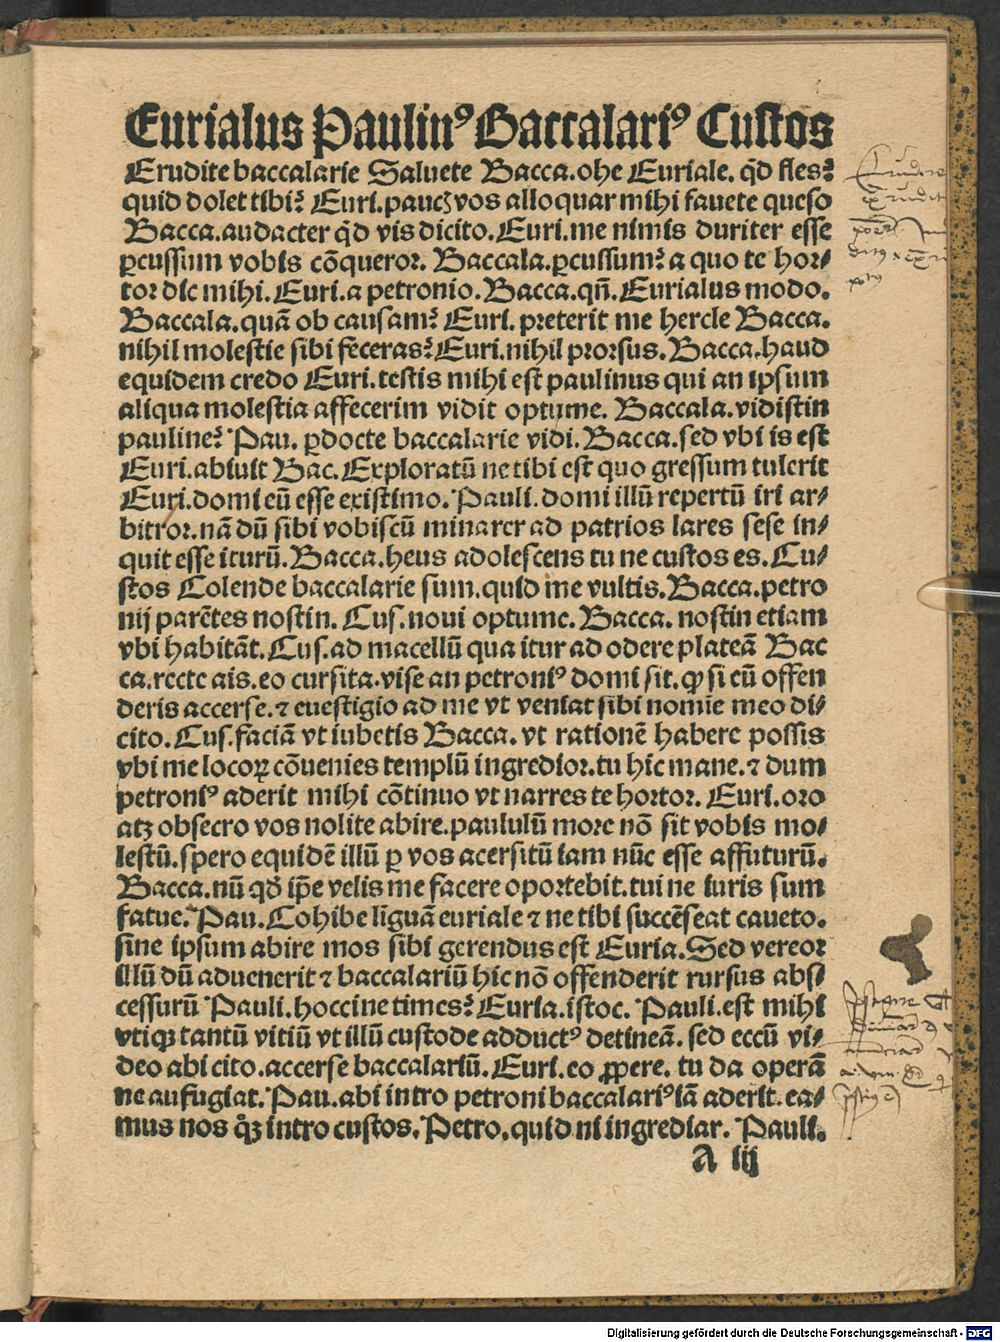 Eurialus Paulinꝰ Baccalariꝰ Custos
Erudite baccalarie Saluete Bacca.ohe Euriale. qd̄ fles?
quid dolet tibi? Euri.paucꝫ vos alloquar mihi fauete queso
Bacca.audacter qd̄ vis dicito.Euri.me nimis duriter esse
ꝑcussum vobis cōqueror. Baccala.ꝑcussum? a quo te hor⸗
tor dic mihi.Euri.a petronio.Bacca.qn̄.Eurialus modo.
Baccala.quā ob causam? Euri.preterit me hercle Bacca.
nihil molestie sibi feceras? Euri.nihil prorsus.Bacca.haud
equidem credo Euri.testis mihi est paulinus qui an ipsum
aliqua molestia affecerim vidit optume. Baccala.vidistin
pauline? Pau. ꝑdocte baccalarie vidi.Bacca.sed vbi is est
Euri.abiuit Bac.Exploratū ne tibi est quo gressum tulerit
Euri.domi eū esse existimo.Pauli.domi illū repertū iri ar⸗
bitror.nā dū sibi vobiscū minarer ad patrios lares sese in⸗
quit esse iturū.Bacca.heus adolescens tu ne custos es.Cu⸗
stos Colende baccalarie sum.quid me vultis.Bacca.petro
nij parētes nostin. Cus.noui optume. Bacca. nostin etiam
vbi habitāt.Cus.ad macellū qua itur ad odere plateā Bac
ca.recte ais.eo cursita.vise an petroniꝰ domi sit.ꝙ si eū offen
deris accerse.⁊ euestigio ad me vt veniat sibi nomie meo di⸗
cito.Cus.faciā vt iubetis Bacca.vt rationē habere possis
vbi me locoꝝ cōuenies templū ingredior.tu hic mane.⁊ dum
petroniꝰ aderit mihi cōtinuo vt narres te hortor. Euri.oro
atꝫ obsecro vos nolite abire.paululū more nō sit vobis mo⸗
lestū.spero equidē illū ꝑ vos acersitū iam nūc esse affuturū.
Bacca.nū qd̄ ip̄e velis me facere oportebit.tui ne iuris sum
fatue.Pau.Cohibe līguā euriale ⁊ ne tibi succēseat caueto.
sine ipsum abire mos sibi gerendus est Euria.Sed vereor
illū dū aduenerit ⁊ baccalariū hic nō offenderit rursus absi
cessurū Pauli.hoccine times? Euria.istoc. Pauli.est mihi
vtiqꝫ tantū vitiū vt illū custode adductꝰ detineā. sed eccū vi⸗
deo abi cito.accerse baccalariū. Euri.eo ꝓpere. tu da operā
ne aufugiat.Pau.abi intro petroni baccalariꝰ iā aderit.ea⸗
mus nos q̊ꝫ intro custos.Petro.quid ni ingrediar. Pauli.
A iij
Digitalisierung gefördert durch die Deutsche Forschungsgemeinschaft - DFG